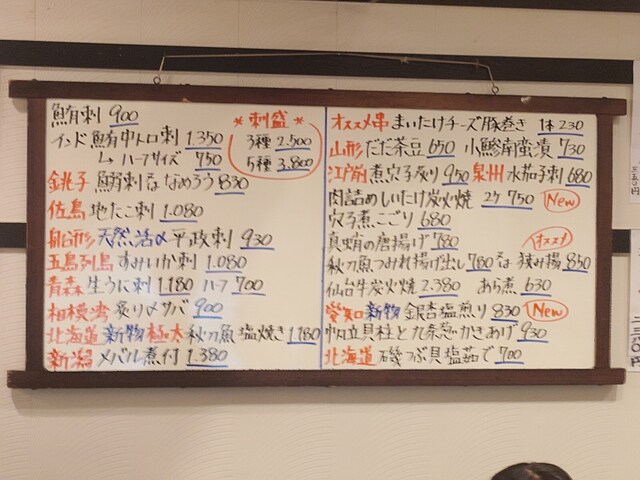 鮪刺 900
インド鮪中トロ刺 1.350
↳ ハーフサイズ 750
銚子 鰯刺 なめろう 830
佐島 地たこ刺 1.080
船形 天然、活〆平政刺 930
五島列島 すみいか刺 1.080
青森 生うに刺 1.180 ハーフ 700
相模湾 炙り〆サバ 900
北海道 新物 極太 秋刀魚 塩焼き 1.180
新潟 メバル煮付 1.380
* 刺盛 *
3種 2.500
5種 3.800
オススメ串 まいたけチーズ豚巻き 1本 230
山形 だだ茶豆 650 小鯵南蛮漬 730
江戸前 煮穴子炙り 950 泉州 水茄子刺 680
肉詰めしいたけ炭火焼 2ケ 750 New
穴子煮こごり 680
真蛸の唐揚げ 780 オススメ
秋刀魚つみれ揚げ出し 780 狭み揚 850
仙台牛炭火焼 2.380 あら煮 630
愛知 新物 銀杏塩煎り 830 New
帆立貝柱と九条葱かきあげ 930
北海道 磯つぶ貝塩茹で 700